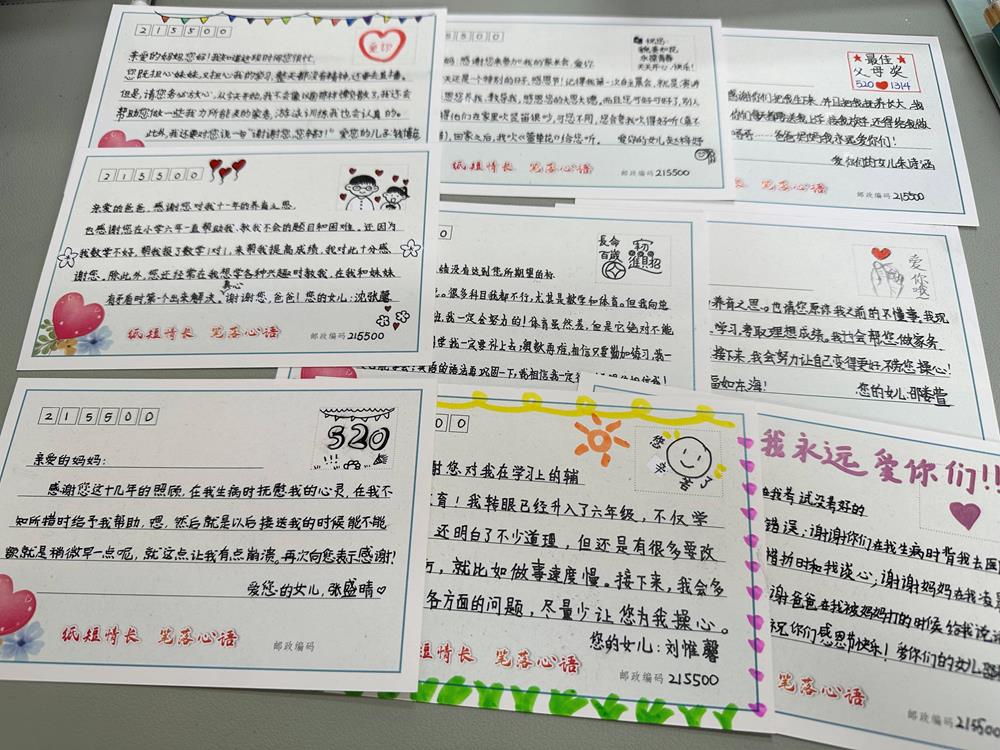 215500
爱你
亲爱的妈妈您好!我知道这段时间您很忙.
您既担心妹妹,又担心我的学习,整天都没有精神,还要去直播.
但是,请您务必放心,从今天开始,我不会像以前那样懒散了,我还会
帮助您做一些我力所能及的家务,游泳训练我也会认真的.
此外,我还要对您说一句“谢谢您,您辛苦了!”爱您的儿子
5500
祝您:
天天开心,快乐!
妈:感谢您来参加我的家长会,爱你
天还是一个特别的日子,感恩节!记得
回家之后,我吹《萱草花》给您听.
爱你的女儿
纸短情长 笔落心语
邮政编码215500
最佳
父母奖
520 1314
感谢你们把我生下来,并且把我抚养长大,
爸爸妈妈我永远爱你们!
爱你们的女儿朱诗涵
笔落心语
邮政编码215500
215500
亲爱的爸爸,感谢您对我十一年的养育之恩.
也感谢您在小学六年一直帮助我,教我不会的题目和困难。还因为
我数学不好,帮我报了数学1对1,来帮我提高成绩,我对此十分感
谢您。除此外,您还经常在我想学各种兴趣时教我,在我和妹妹
有矛盾时第个出来解决。真心谢谢您,爸爸!您的女儿:沈张馨
纸短情长 笔落心语
邮政编码215500
0
长命
百岁
招
进
财
没有达到您所期望的标
很多科目我都不行,尤其是数学和体育。但我向您
我一定会努力的!体育虽然差,但是它绝对不能
我一定要补上去;奥数再难,相信只要勤加练习,我一
英语的语法再巩固一下,我相信我一定
爱你哦
养育之恩。也请您原谅我之前的不懂事,我现
学习,考取理想成绩。我会帮您做家务,
接下来,我会努力让自己变得更好,不为您操心!
福如东海!
您的女儿:邵
215500
520
亲爱的妈妈:
感谢您这十几年的照顾,在我生病时抚慰我的心灵,在我不
知所措时给予我帮助,嗯,然后就是以后接送我的时候能不能
就是稍微早一点呢,就这点让我有点崩溃。再次向您表示感谢!
爱您的女儿,张盛晴♡
纸短情长 笔落心语
邮政编码
00
您辛苦了
谢您对我在学习上的辅
育!我转眼已经升入了六年级,不仅学
还明白了不少道理,但还是有很多要改
方,就比如做事速度慢。接下来,我会多
各方面的问题,尽量少让您为我操心。
您的女儿:刘惟馨
情长 笔落心语
邮政编码215500
我永远爱你们!!
我考试没考好的
错误;谢谢你们在我生病时背我去医
惜折时和我谈心;谢谢妈妈在我凌晨
谢爸爸在我被妈妈打的时候给我说
祝你们感恩节快乐!爱你们的女儿
笔落心语
邮政编码215500